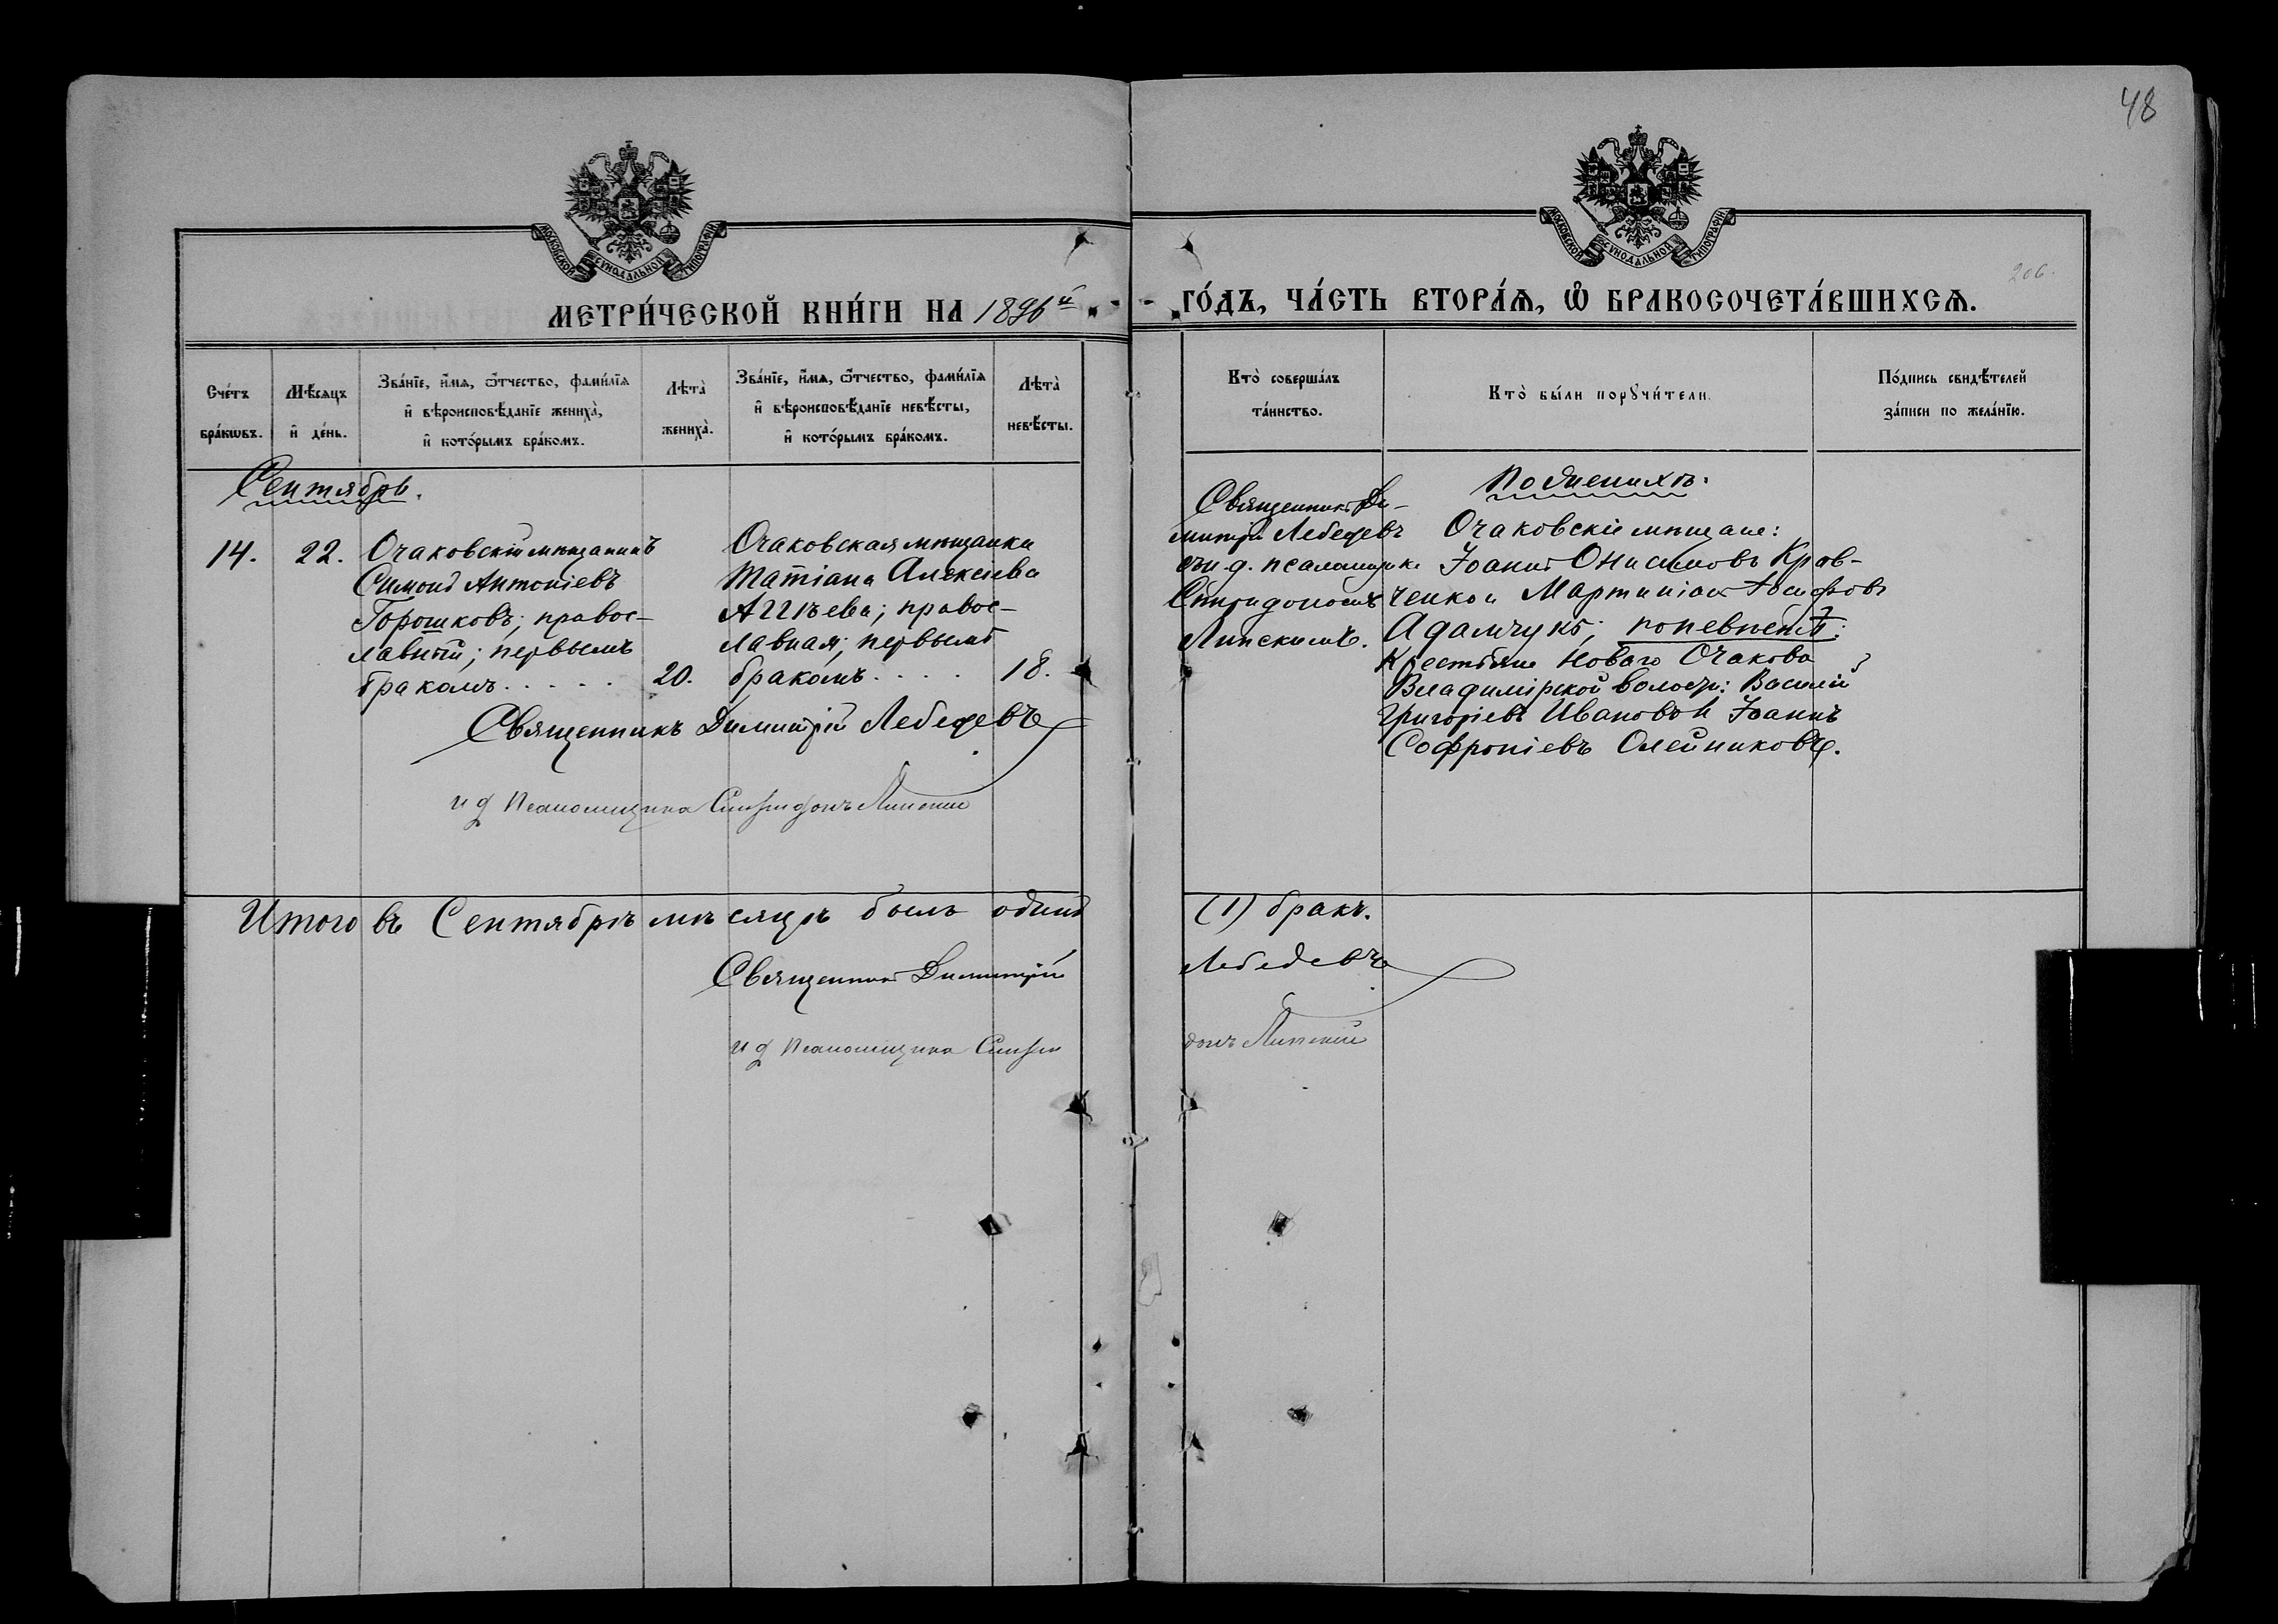 48
206.
МОСКОВСКОЙ СУНОДАЛЬНОЙ ТИПОГРАФІИ
МОСКОВСКОЙ СУНОДАЛЬНОЙ ТИПОГРАФІИ
МЕТРИ́ЧЕСКОЙ КНИ́ГИ НА 1896й
ГО́ДЪ, ЧА́СТЬ ВТОРА́Ѧ, Ѽ БРАКОСОЧЕТА́ВШИХСѦ.
Сче́тъ бра́кѡвъ.
Мѣ́сѧцъ и҆ де́нь.
Зва́нїе, и҆́мѧ, ѻ҆́тчество, фами́лїѧ
и҆ вѣроисповѣ́данїе жениха̀,
и҆ кото́рымъ бра́комъ.
Лѣта̀ жениха̀.
Зва́нїе, и҆́мѧ, ѻ҆́тчество, фами́лїѧ
и҆ вѣроисповѣ́данїе невѣ́сты,
и҆ кото́рымъ бра́комъ.
Лѣта̀ невѣ́сты.
Кто̀ соверша́лъ
та́инство.
Кто̀ бы́ли порꙋчи́тели.
По́дпись свидѣ́телей
за́писи по жела́нїю.
Сентябрь.
14.
22.
Очаковскій мѣщанинъ
Симонъ Антоніевъ
Горошковъ; правос-
лавный; первымъ
бракомъ. . . . .
20.
Очаковская мѣщанка
Татіана Алексіева
правос-
лавная; первымъ
бракомъ. . . .
18.
Священникъ Димитрій Лебедевъ
и д Псаломщика Спиридонъ Липскій
Священникъ Ди-
митрій Лебедевъ
съ и. д. псаломщика
Спиридономъ
Липскимъ.
По женихѣ:
Очаковскіе мѣщане:
Іоаннъ Онисимовъ Крав-
ченко и Мартиніанъ Іосифовъ
Адамчукъ; по невѣстѣ:
Крестьяне Новаго Очакова
Владимірской волости: Василій
Григоріевъ Ивановъ и Іоаннъ
Софроніевъ Олейниковъ.
Итого въ Сентябрѣ мѣсяцѣ былъ одинъ (1) бракъ.
Священникъ Димитрій Лебедевъ
и д Псаломщика Спиридонъ Липскій